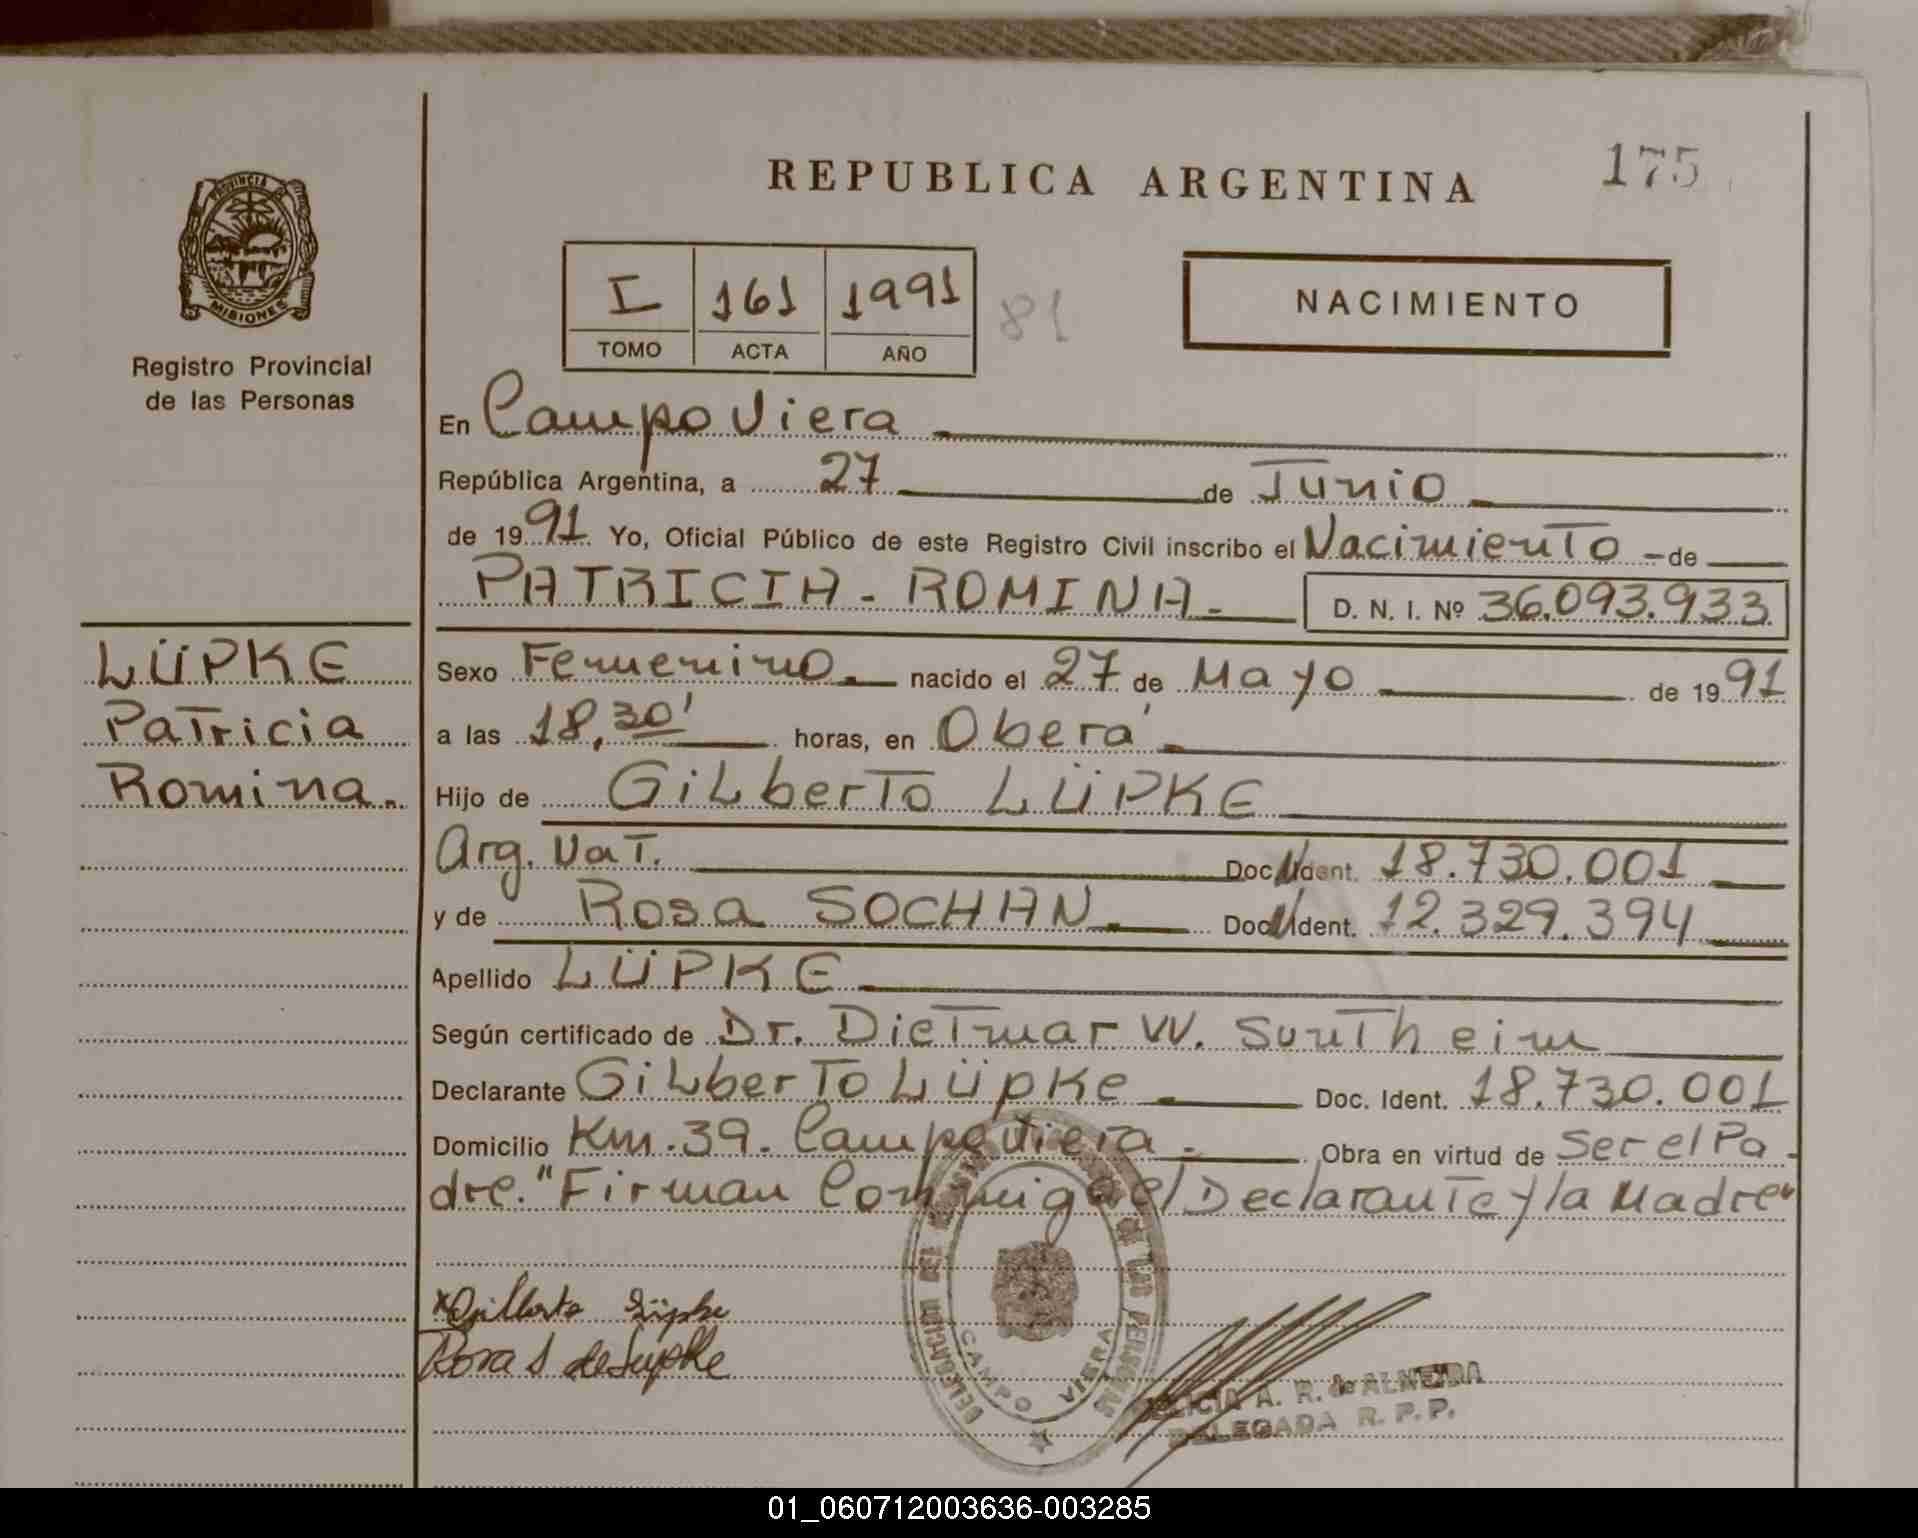 REPUBLICA ARGENTINA
175
PROVINCIA DE
MISIONES
Registro Provincial
de las Personas
I 161 1991 81
TOMO ACTA AÑO
NACIMIENTO
En Campo Viera
República Argentina, a 27 de Junio
de 1991 Yo, Oficial Público de este Registro Civil inscribo el Nacimiento - de
PATRICIA - ROMINA - D. N. I. Nº 36.093.933
LÜPKE
Patricia
Romina.
Sexo Femenino. nacido el 27 de Mayo de 1991
a las 18,30' horas, en Oberá
Hijo de Gilberto LÜPKE
Arg. Nat. Doc. Ident. 18.730.001
y de Rosa SOCHAN Doc. Ident. 12.329.394
Apellido LÜPKE
Según certificado de Dr. Dietmar W. Suntheim
Declarante Gilberto Lüpke Doc. Ident. 18.730.001
Domicilio Km. 39. Campo Viera. Obra en virtud de Ser el Pa-
dre. "Firman Conmigo el Declarante y la Madre"
x Gilberto Lüpke
Rosa S de Lupke
DELEGACION DEL REGISTRO DE LAS PERSONAS
CAMPO VIERA
ALICIA A. R. de ALMEIDA
DELEGADA R. P. P.
01_060712003636-003285